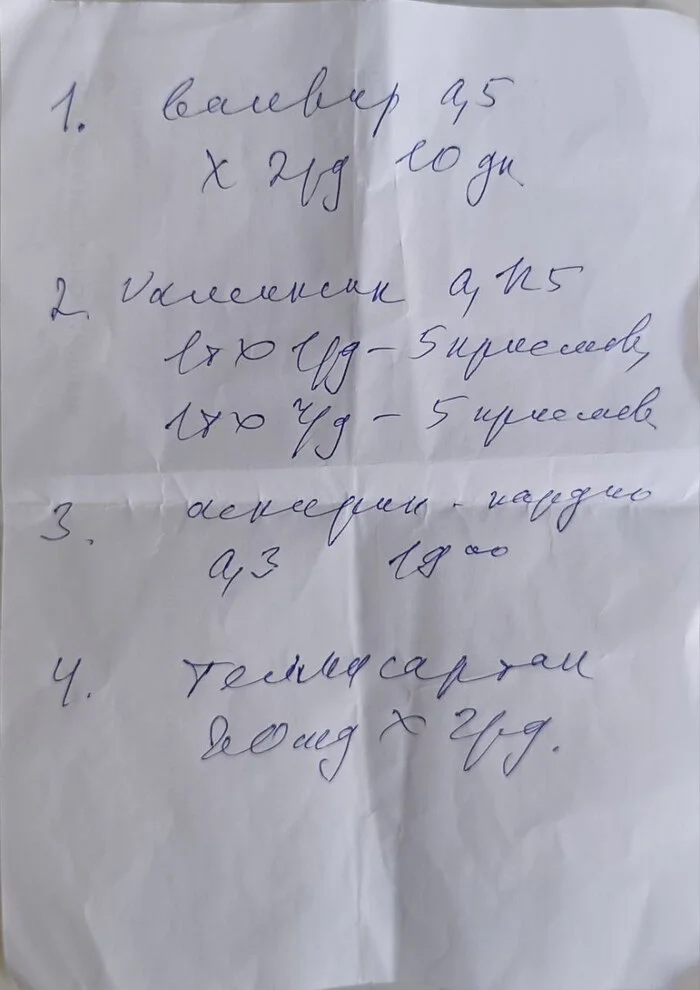 1. Валвир 0,5
х 2р/д 10 дн
2. Галавит 0,125
1т х 1р/д - 5 приемов,
1т х ч/д - 5 приемов
3. аспирин - кардио
0,3 19°°
4. Телмисартан
80 мг х 2р/д.